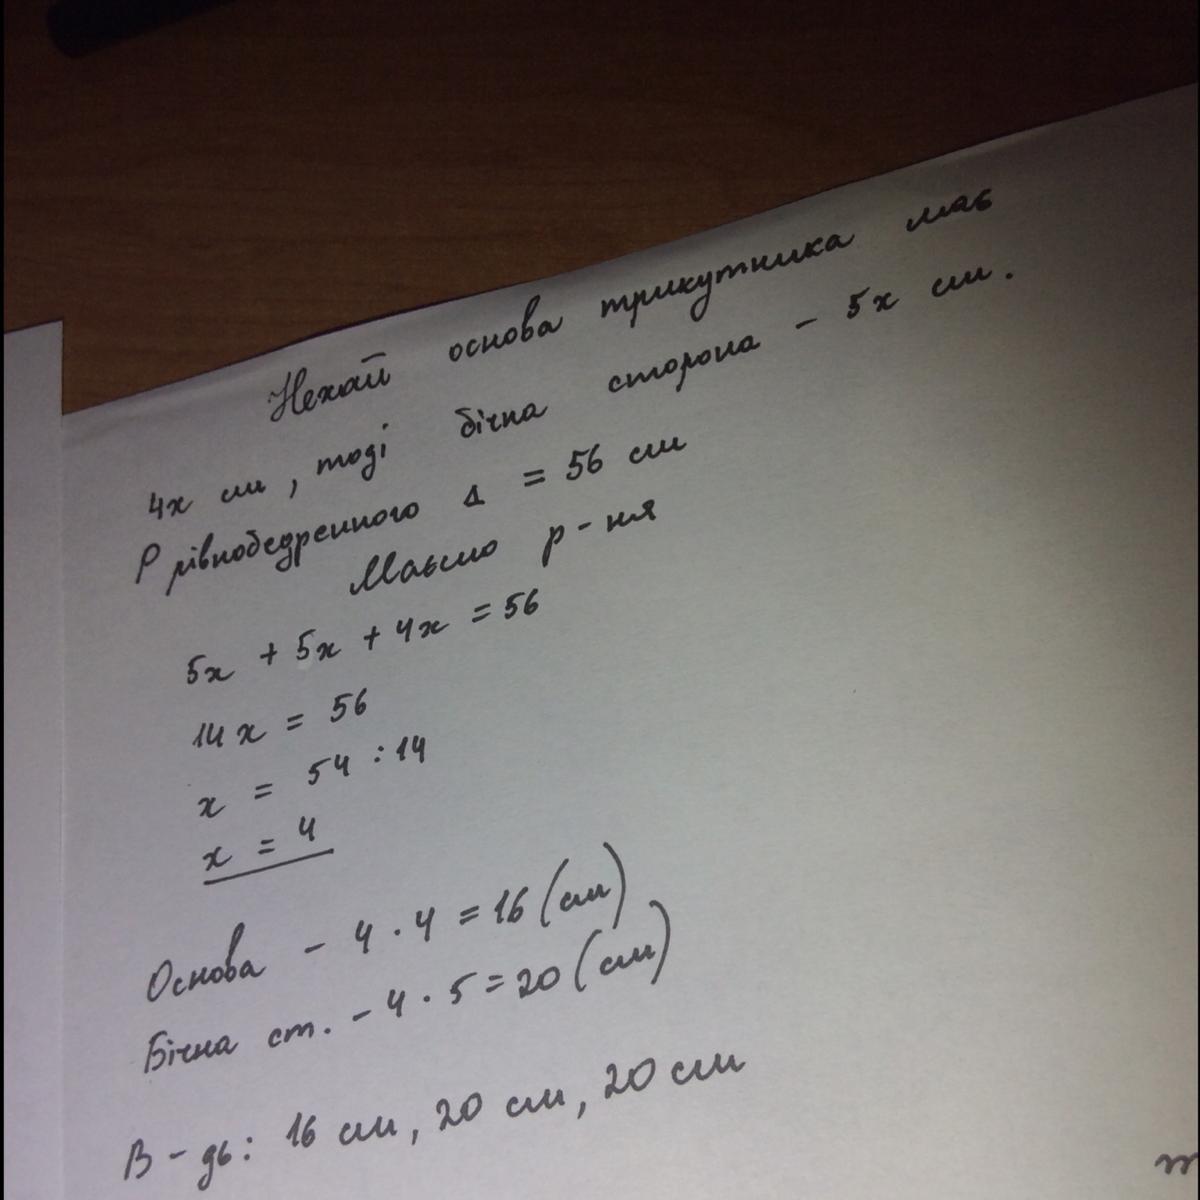 Нехай основа трикутника має
4x см, тоді бічна сторона - 5x см.
P рівнобедренного Δ = 56 см
Маємо р-ня
5x + 5x + 4x = 56
14x = 56
x = 54 : 14
x = 4
Основа - 4 · 4 = 16 (см)
Бічна ст. - 4 · 5 = 20 (см)
В-дь: 16 см, 20 см, 20 см